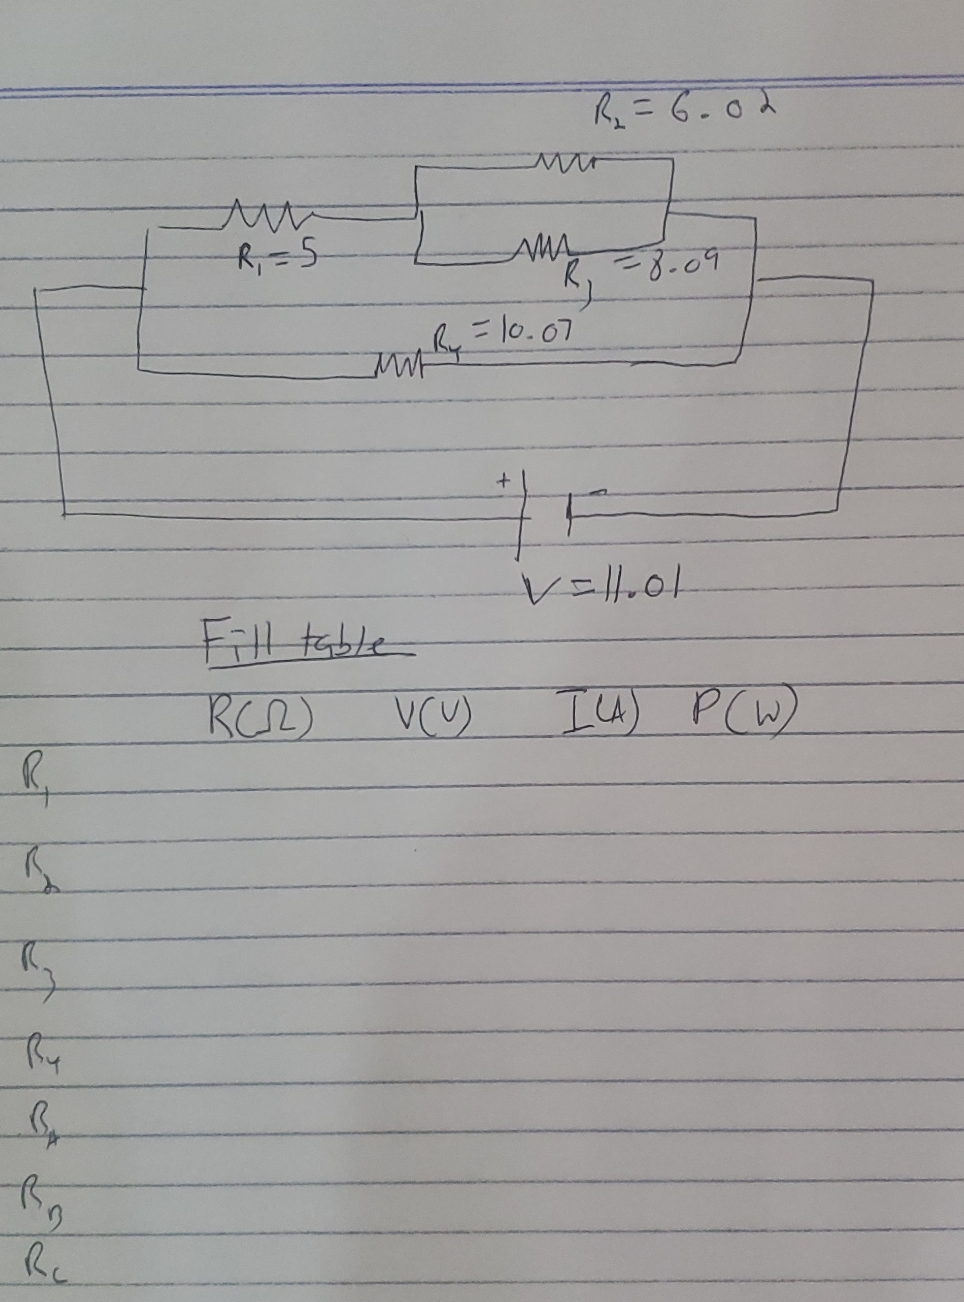 R₂ = 6.02
R₁ = 5
R₃ = 8.09
R₄ = 10.07
+ -
V = 11.01
Fill table
R(Ω) V(V) I(A) P(W)
R₁
R₂
R₃
R₄
R_A
R_B
R_C